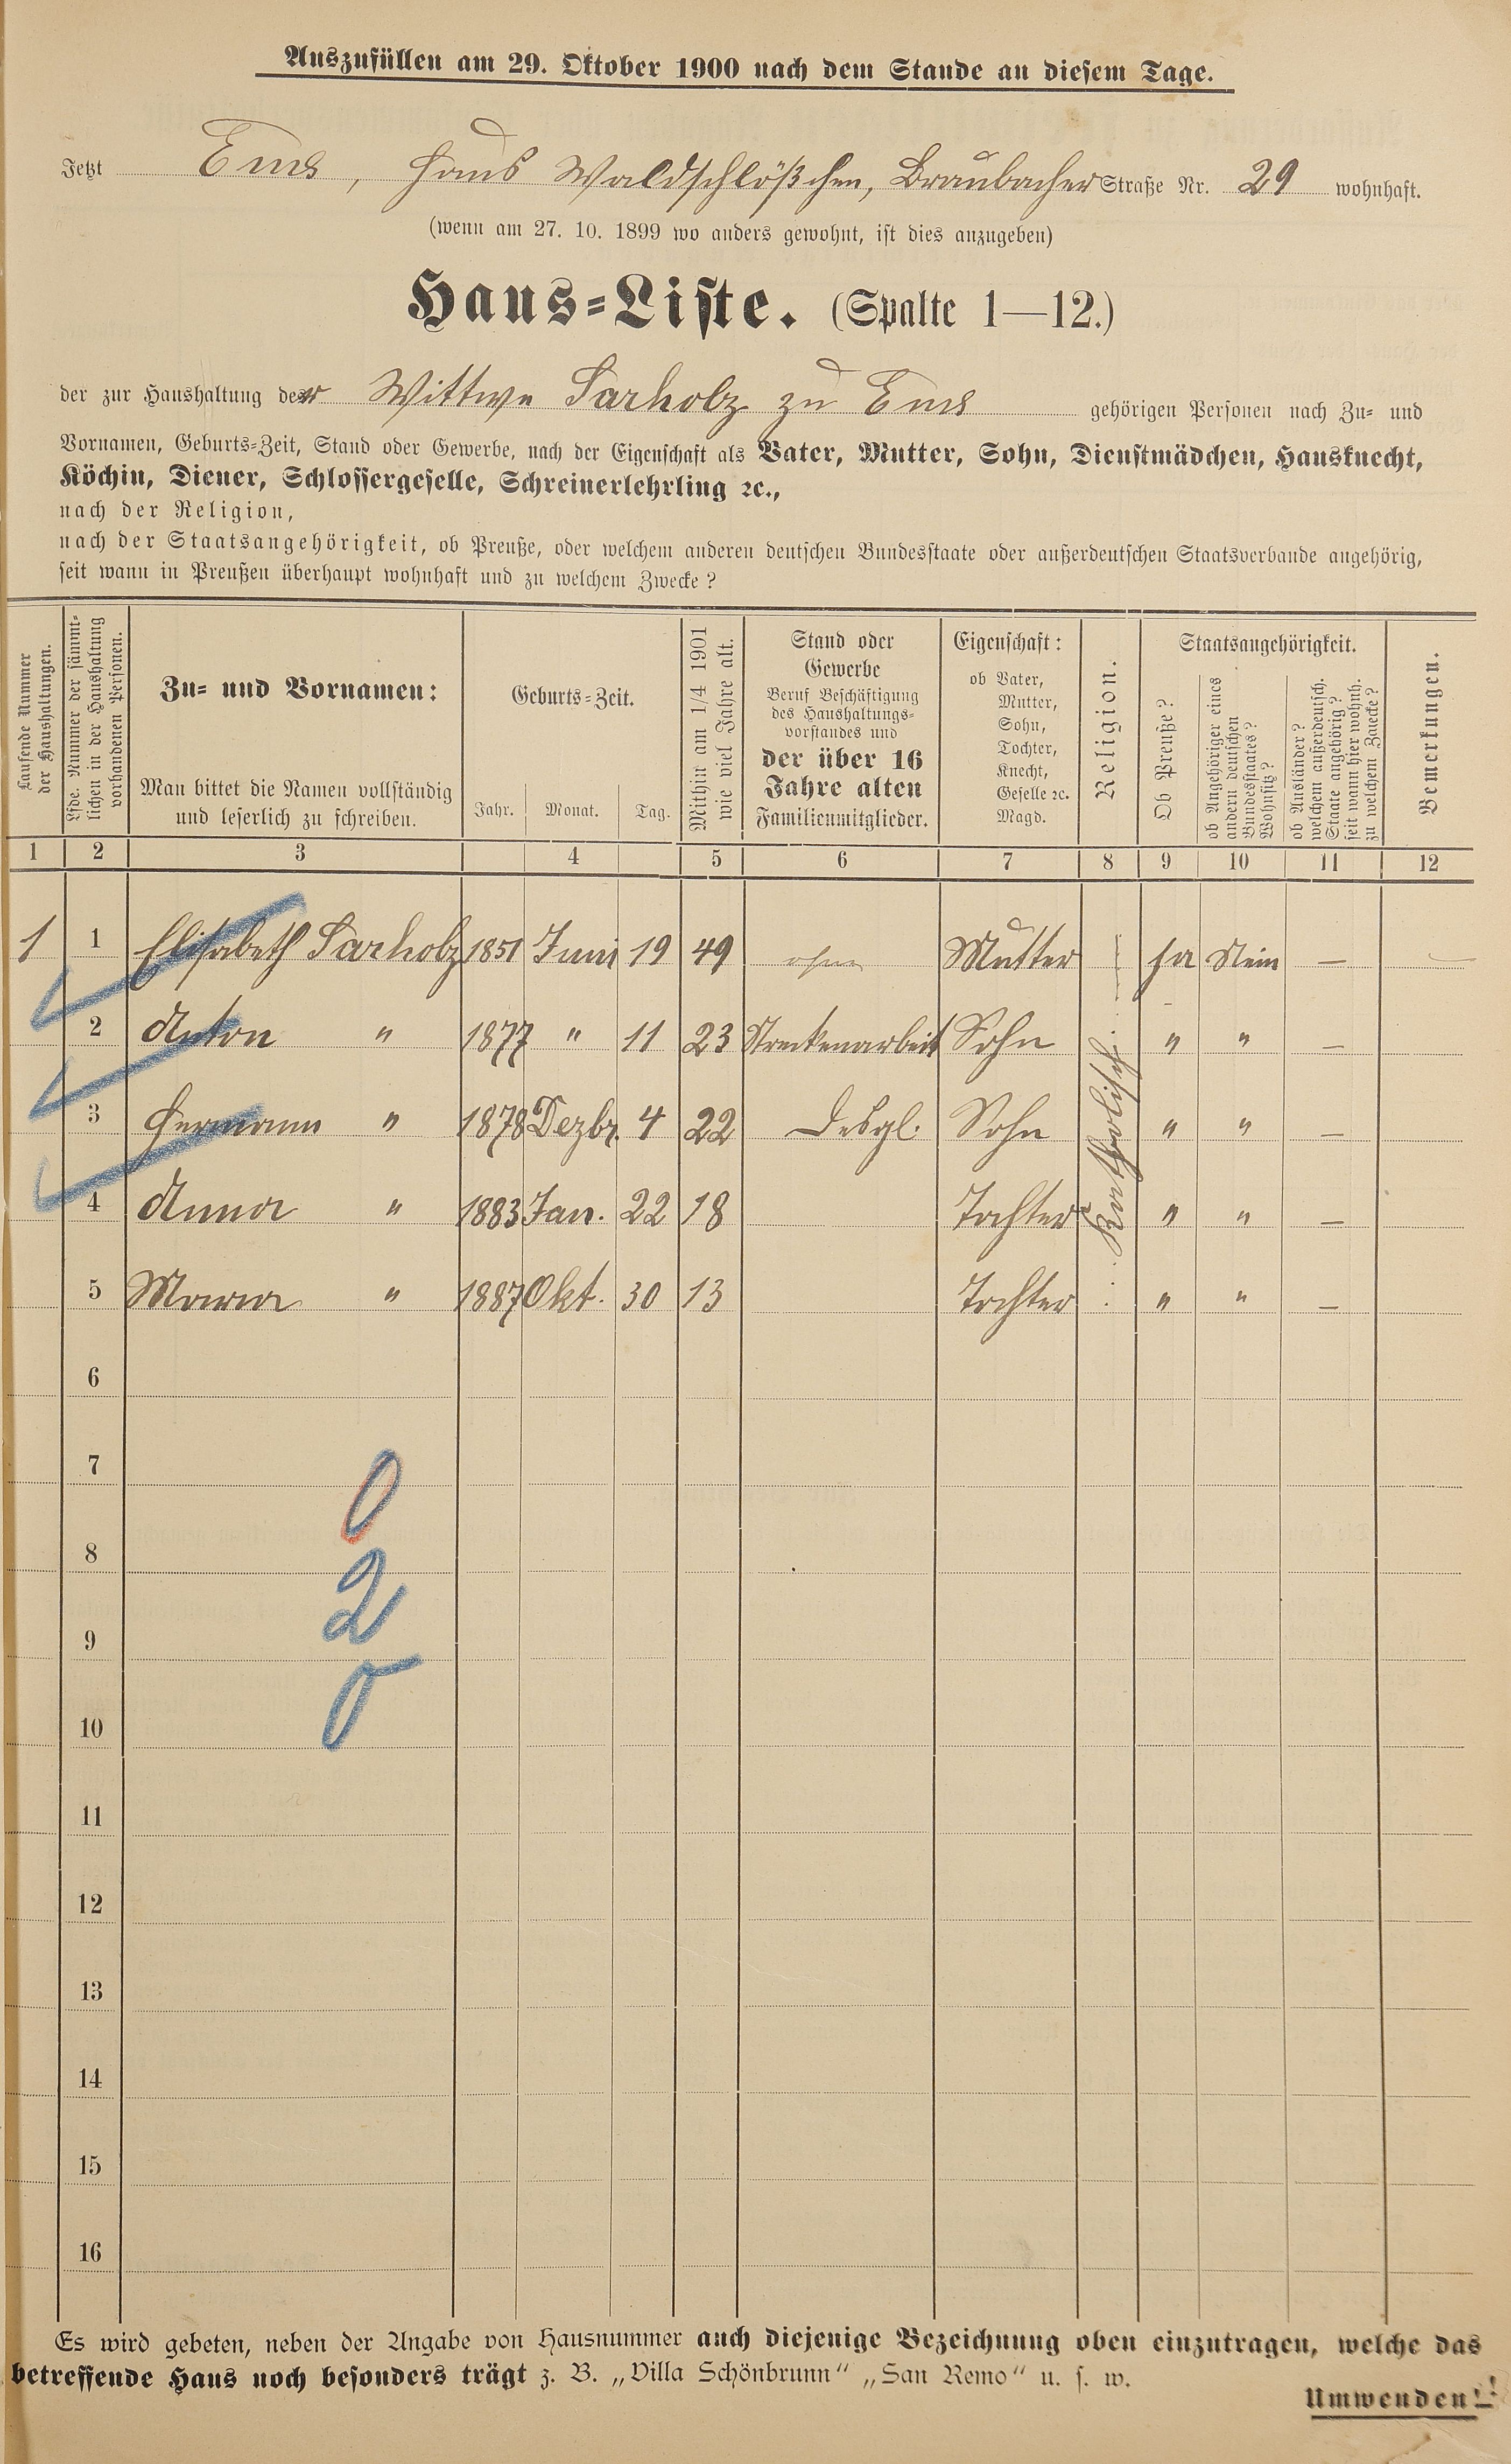 Auszufüllen am 29. Oktober 1900 nach dem Stande an diesem Tage.
Jetzt Ems, Haus Waldschlößchen, Braubacher Straße Nr. 29 wohnhaft.
(wenn am 27. 10. 1899 wo anders gewohnt, ist dies anzugeben)
Haus=Liste. (Spalte 1—12.)
der zur Haushaltung der Wittwe Sarholz zu Ems gehörigen Personen nach Zu= und
Vornamen, Geburts=Zeit, Stand oder Gewerbe, nach der Eigenschaft als Vater, Mutter, Sohn, Dienstmädchen, Hausknecht,
Köchin, Diener, Schlossergeselle, Schreinerlehrling ꝛc.,
nach der Religion,
nach der Staatsangehörigkeit, ob Preuße, oder welchem anderen deutschen Bundesstaate oder außerdeutschen Staatsverbande angehörig,
seit wann in Preußen überhaupt wohnhaft und zu welchem Zwecke?
Laufende Nummer
der Haushaltungen.
Lfde. Nummer der sämmt=
lichen in der Haushaltung
vorhandenen Personen.
Zu= und Vornamen:
Man bittet die Namen vollständig
und leserlich zu schreiben.
Geburts=Zeit.
Jahr. Monat. Tag.
Mithin am 1/4 1901
wie viel Jahre alt.
Stand oder
Gewerbe
Beruf Beschäftigung
des Haushaltungs=
vorstandes und
der über 16
Jahre alten
Familienmitglieder.
Eigenschaft:
ob Vater,
Mutter,
Sohn,
Tochter,
Knecht,
Geselle ꝛc.
Magd.
Religion.
Staatsangehörigkeit.
Ob Preuße?
ob Angehöriger eines
andern deutschen
Bundesstaates?
Wohnsitz?
ob Ausländer?
welchem außerdeutsch.
Staate angehörig?
seit wann hier wohnh.
zu welchem Zwecke?
Bemerkungen.
1 2 3 4 5 6 7 8 9 10 11 12
1 1 Elisabeth Sarholz 1851 Juni 19 49 ohne Mutter ja Nein —
2 Anton " 1877 " 11 23 Streckenarbeit Sohn " " —
3 Hermann " 1878 Dezbr. 4 22 Desgl. Sohn " " —
4 Anna " 1883 Jan. 22 18 Tochter " " —
5 Maria " 1887 Okt. 30 13 Tochter " " —
Katholisch
6
7
0
8
2
9
0
10
11
12
13
14
15
16
Es wird gebeten, neben der Angabe von Hausnummer auch diejenige Bezeichnung oben einzutragen, welche das
betreffende Haus noch besonders trägt z. B. „Villa Schönbrunn" „San Remo" u. s. w.
Umwenden!